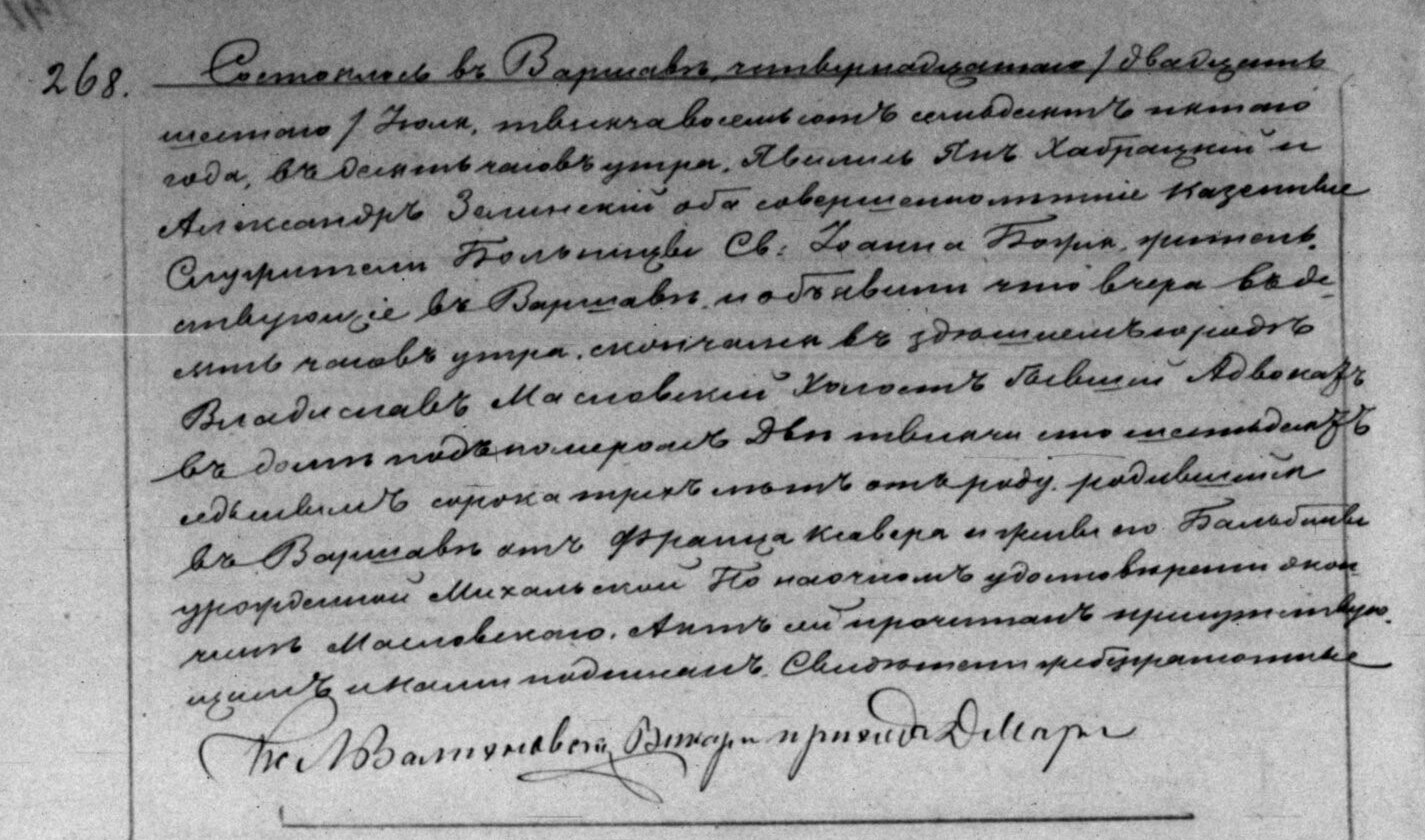 268. Состоялось въ Варшавѣ, четвернадцатаго / двадцать
шестаго / Іюля, тысяча восемьсотъ семьдесятъ пятаго
года, въ десять часовъ утра. Явились Янъ Хабрацкій и
Александръ Зелинскій оба совершеннолѣтніе казенные
Служители Больницы Св: Іоанна Божія, житель-
ствующіе въ Варшавѣ, и объявили что вчера въ де-
сять часовъ утра, скончался въ здѣшнемъ городѣ
Владиславъ Масловскій Холостъ бывшій Адвокатъ
въ домѣ подъ номеромъ Двѣ тысячи сто шестьдесятъ
седьмымъ сорока трехъ лѣтъ отъ роду, родившійся
въ Варшавѣ отъ Франца Ксавера и жены его Бальбины
урожденной Михальской По наочномъ удостовѣреніи о кон-
чинѣ Масловскаго. Актъ сей прочитанъ присутствую-
щимъ и Нами подписанъ. Свидѣтели неграмотные
Викарій прихода Д Маріи